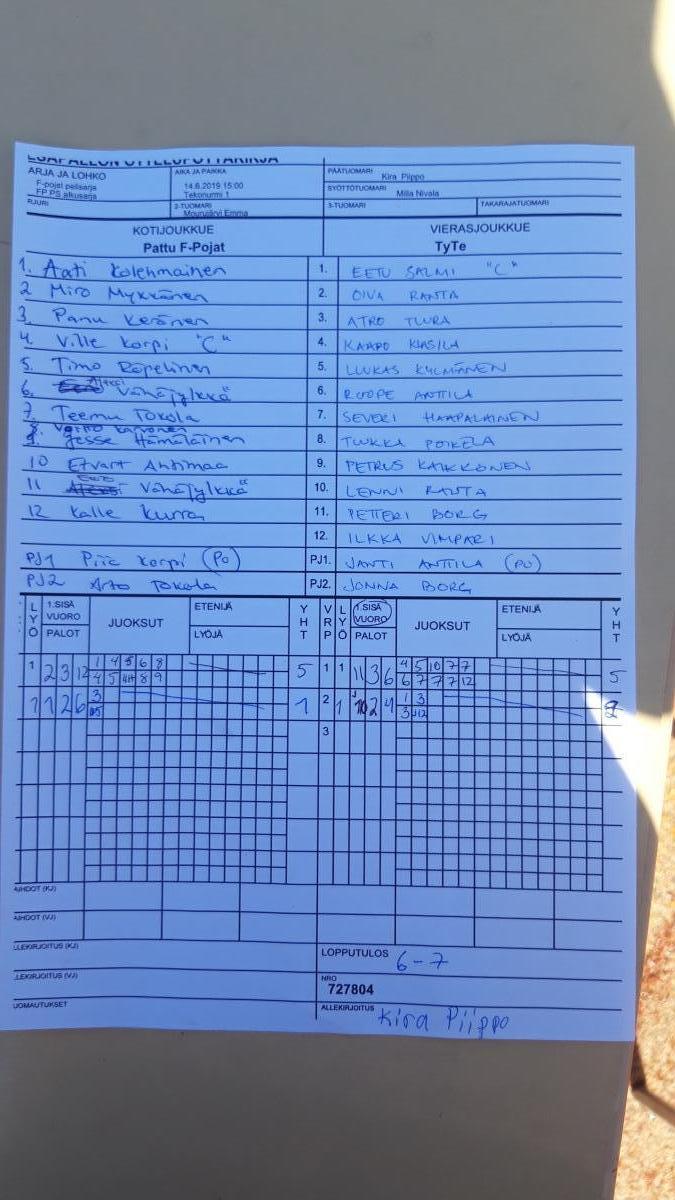 ARJA JA LOHKO
F-pojat pelisarja
FP PS alkusarja
AIKA JA PAIKKA
14.6.2019 15:00
Tekonurmi 1
PÄÄTUOMARI
Kira Piippo
SYÖTTÖTUOMARI
Milla Nivala
RJURI
2-TUOMARI
Mourujärvi Emma
3-TUOMARI
TAKARAJATUOMARI
KOTIJOUKKUE
Pattu F-Pojat
VIERASJOUKKUE
TyTe
1. Aati Kolehmainen
2 Miro Mykkänen
3. Panu Keränen
4. Ville Korpi "C"
5. Timo Röpelinen
6. Aleksi Vähäjylkkä
7. Teemu Tokola
8. Verho Karvonen
9. Jesse Hämäläinen
10 Etvart Ahtimaa
11 Eero Vähäjylkkä
12 Kalle Kurra
PJ1 Piia Korpi (PO)
PJ2 Arto Tokola
1. EETU SALMI "C"
2. OIVA RANTA
3. ATRO TUURA
4. KAAPO KIASILA
5. LUUKAS KYLMÄNEN
6. ROOPE ANTTILA
7. SEVERI HAAPALAINEN
8. TUUKKA POIKELA
9. PETRUS KAIKKONEN
10. LENNI RAUTA
11. PETTERI BORG
12. ILKKA VIMPARI
PJ1. JANTI ANTTILA (PO)
PJ2. JONNA BORG
LYÖ
1.SISÄ VUORO
PALOT
JUOKSUT
ETENIJÄ
LYÖJÄ
YHT
VRP
LYÖ
1.SISÄ VUORO
PALOT
JUOKSUT
ETENIJÄ
LYÖJÄ
YHT
1 2 3 12 1 4 5 6 8 5 1 1 11 3 6 4 5 10 7 7 5
4 5 8 9 6 7 7 7 12
1 1 2 6 3 1 2 1 2 4 1 3 2
3
AIHDOT (KJ)
AIHDOT (VJ)
LLEKIRJOITUS (KJ)
LOPPUTULOS 6-7
LLEKIRJOITUS (VJ)
NRO
727804
UOMAUTUKSET
ALLEKIRJOITUS Kira Piippo